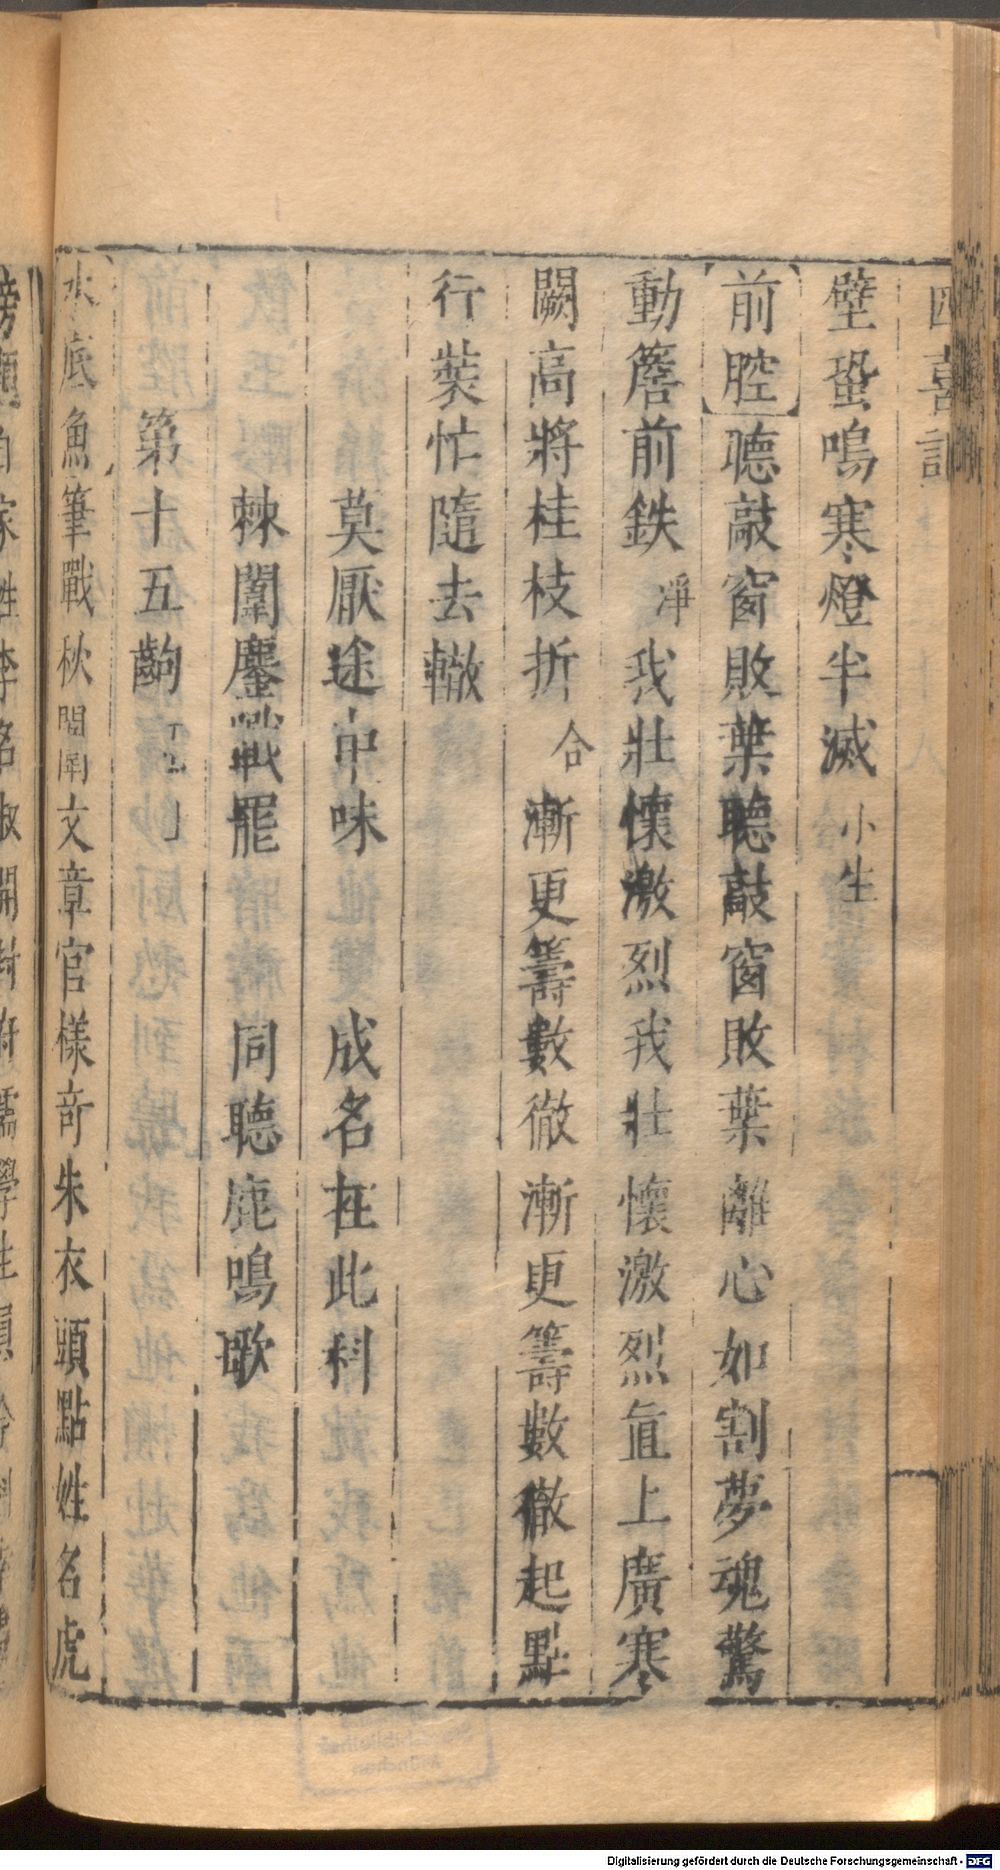 四喜記
壁蛩鳴寒燈半滅 小生
前腔 聽敲窗敗葉聽敲窗敗葉離心如割夢魂驚
動簷前鉄 淨 我壯懷激烈我壯懷激烈直上廣寒
闕高將桂枝折 合 漸更籌數徹漸更籌數徹起點
行裝忙隨去轍
莫厭途中味 成名在此科
棘闈鏖戰罷 同聽鹿鳴歌
第十五齣
水底魚 筆戰秋闈文章官樣奇朱衣頭點姓名虎
Digitalisierung gefördert durch die Deutsche Forschungsgemeinschaft - DFG